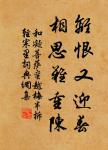 離恨又迎春
相思難重陳
和凝菩薩蠻越梅半拆
輕寒里詞典網集